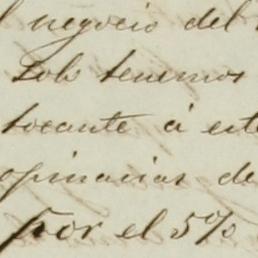 l negocio del
Solo tenemos
tocante á este
opiniones de
por el 5%